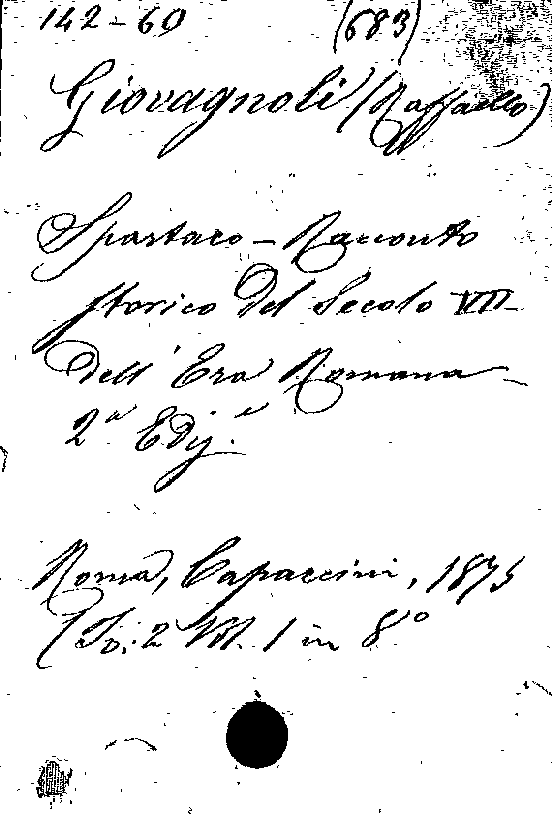 142-60 (683)
Giovagnoli (Raffaello)
Spartaco - Racconto
storico del Secolo VII
dell'Era Romana -
2ª Ediz.e
Roma, Capaccini, 1875
(To. 2 Vol. 1 in 8°